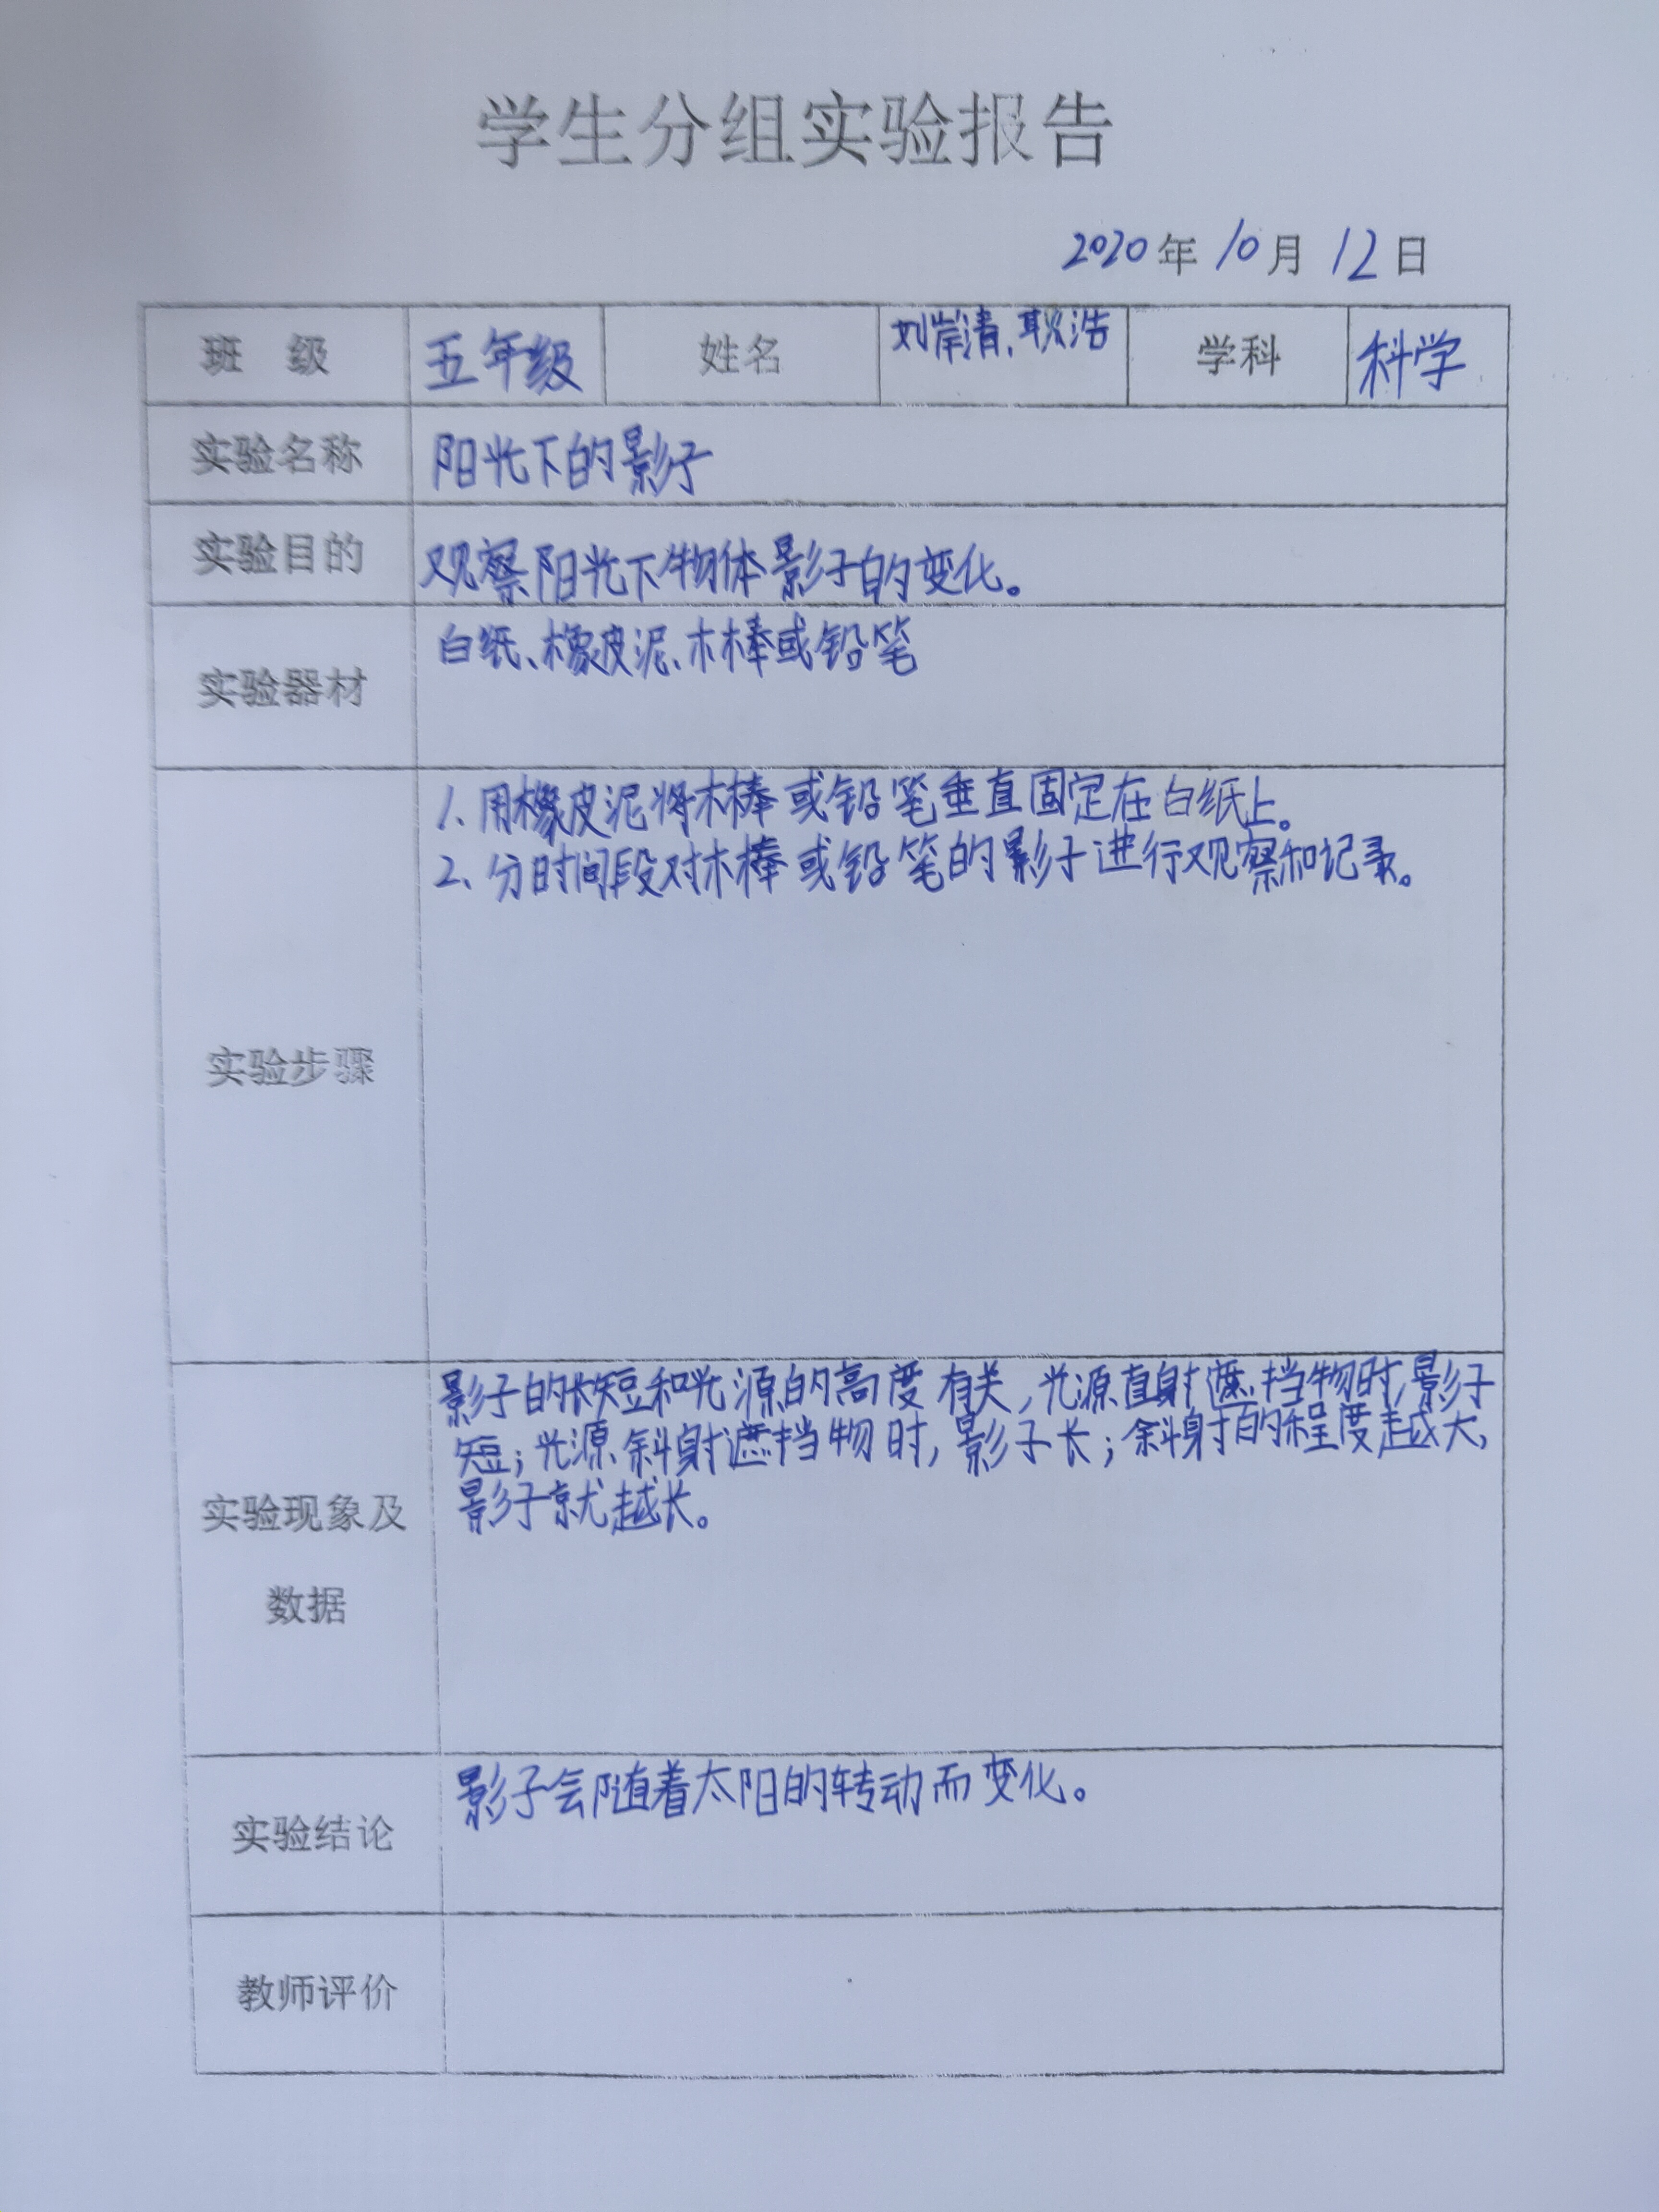 学生分组实验报告
2020年10月12日
班 级 五年级 姓名 刘岸清、耿浩 学科 科学
实验名称 阳光下的影子
实验目的 观察阳光下物体影子的变化。
实验器材 白纸、橡皮泥、木棒或铅笔
实验步骤
1、用橡皮泥将木棒或铅笔垂直固定在白纸上。
2、分时间段对木棒或铅笔的影子进行观察和记录。
实验现象及
数据
影子的长短和光源的高度有关，光源直射遮挡物时，影子
短；光源斜射遮挡物时，影子长；斜射的程度越大，
影子就越长。
实验结论 影子会随着太阳的转动而变化。
教师评价